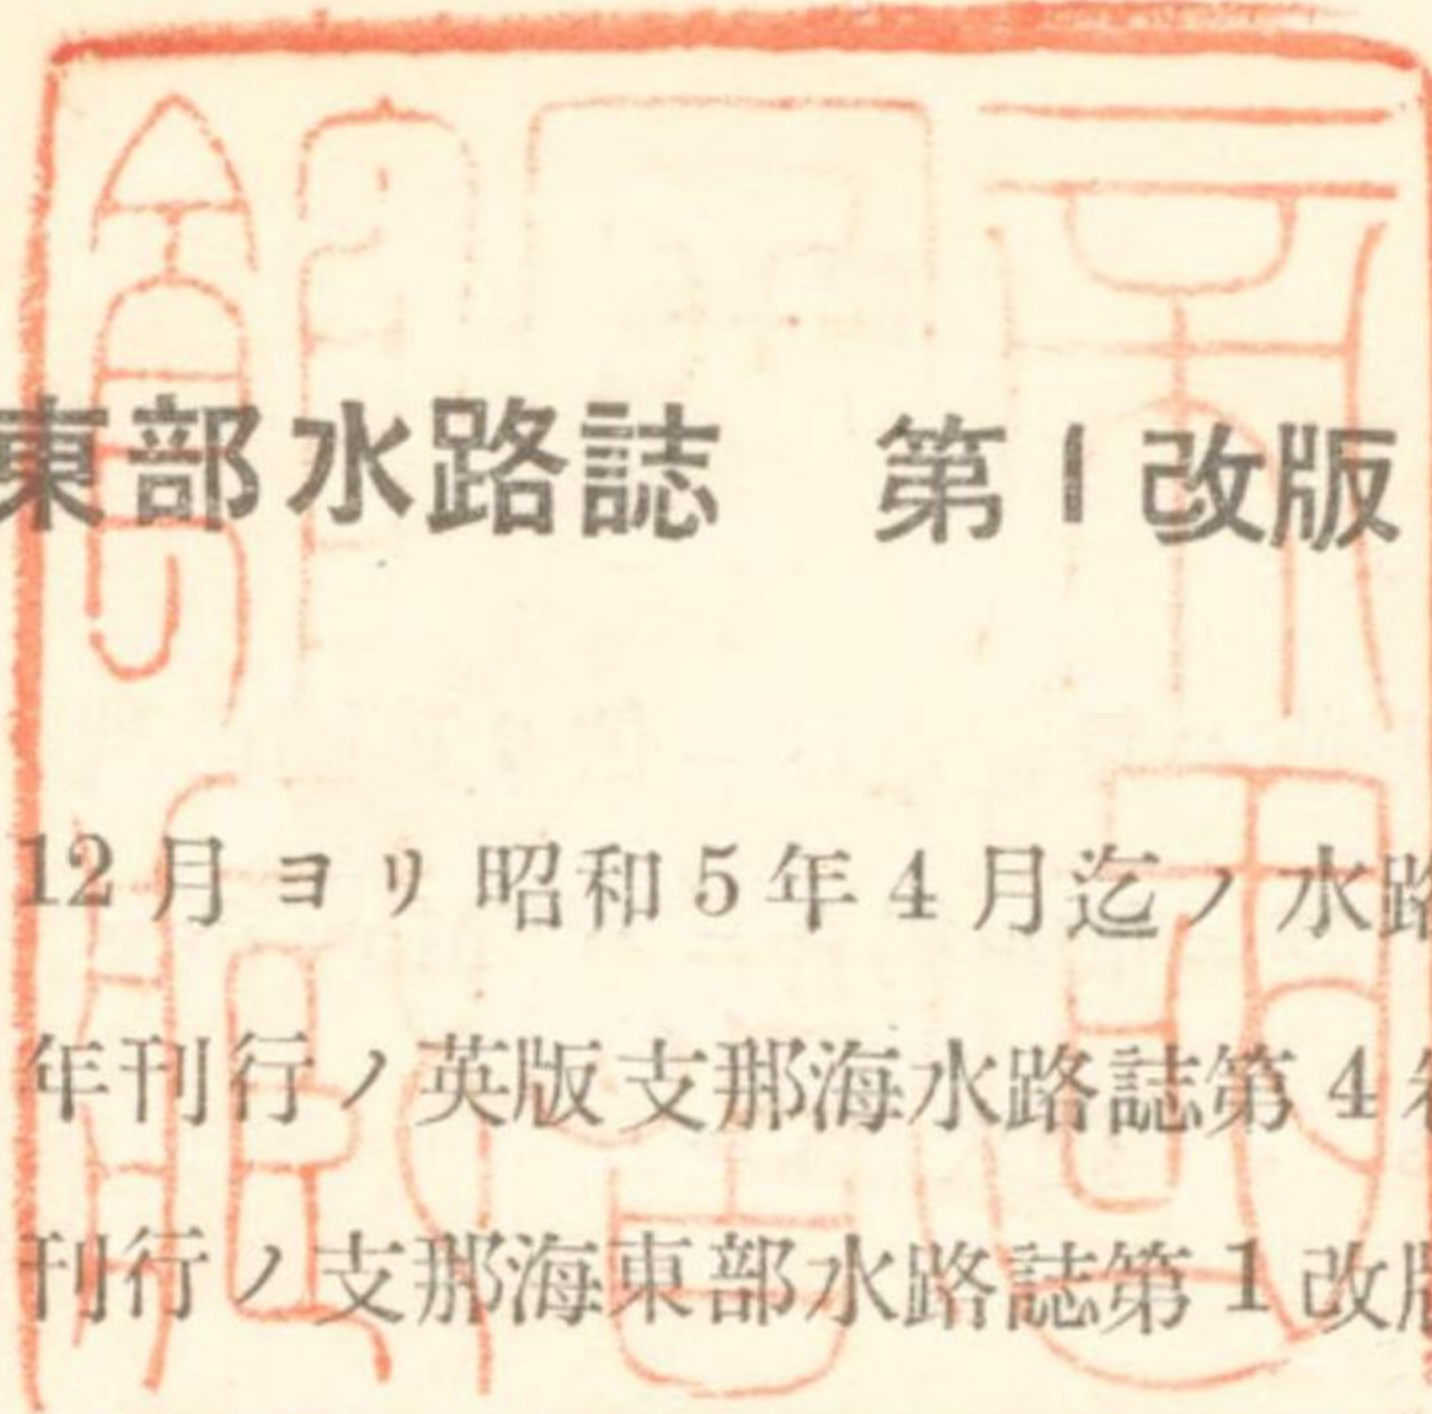 東部水路誌　第1改版
12月ヨリ昭和5年4月迄ノ水路
年刊行ノ英版支那海水路誌第4
刊行ノ支那海東部水路誌第1改版